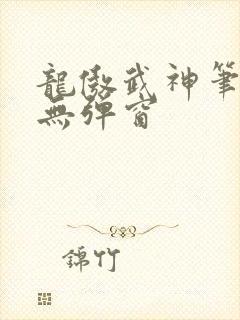 龍傲武神筆
無彈窗
錦竹